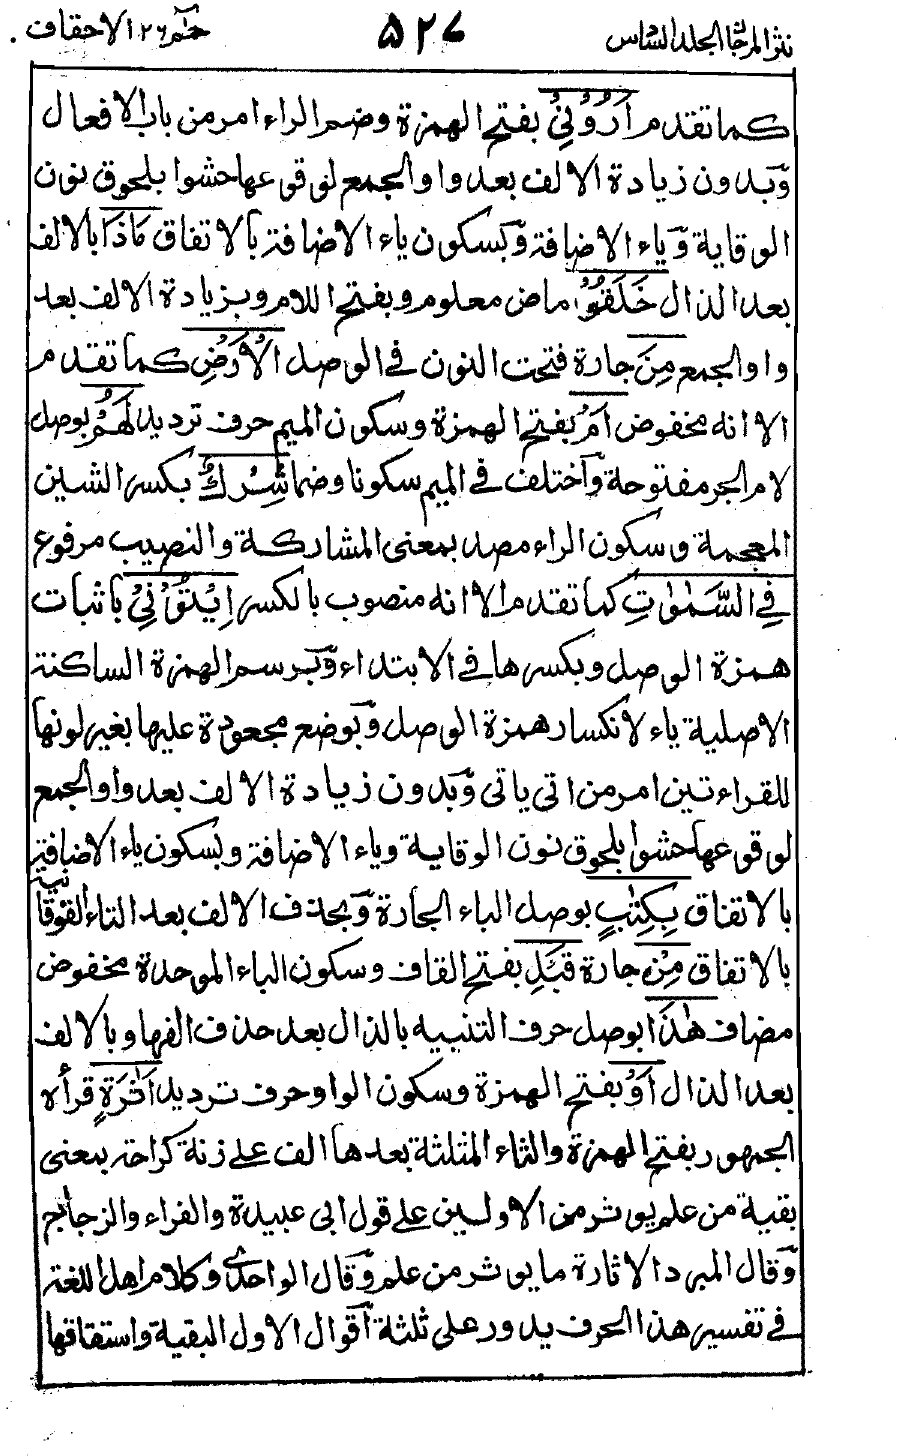 نثر المرجان المجلد السادس ٥٢٧ حٰم ٢٦ الاحقاف
كما تقدم اَرُوْنِيْ بفتح الهمزة وضم الراء امر من باب الافعال
وبدون زيادة الالف بعد واو الجمع لوقوعها حشوا بلحوق نون
الوقاية وياء الاضافة وبسكون ياء الاضافة بالاتفاق مَاذَا بالالف
بعد الذال خَلَقُوْا ماض معلوم وبفتح اللام وبزيادة الالف بعد
واو الجمع مِنَ جارة فتحت النون في الوصل الْاَرْضِ كما تقدم
الا انه مخفوض اَمْ بفتح الهمزة وسكون الميم حرف ترديد لَهُمْ بوصل
لام الجر مفتوحة واختلف في الميم سكونا وضما شِرْكٌ بكسر الشين
المعجمة وسكون الراء مصد بمعنى المشاركة والنصيب مرفوع
فِي السَّمٰوٰتِ كما تقدم الا انه منصوب بالكسر اِيْتُوْنِيْ باثبات
همزة الوصل وبكسرها في الابتداء وبرسم الهمزة الساكنة
الاصلية ياء لانكسار همزة الوصل وبوضع مجعودة عليها بغير لونها
للقراءتين امر من اتى ياتى وبدون زيادة الالف بعد واو الجمع
لوقوعها حشوا بلحوق نون الوقاية وياء الاضافة وبسكون ياء الاضافة
بالاتفاق بِكِتٰبٍ بوصل الباء الجارة وبحذف الالف بعد التاء الفوقانية
بالاتفاق مِنْ جارة قَبْلِ بفتح القاف وسكون الباء الموحدة مخفوض
مضاف هٰذَا بوصل حرف التنبيه بالذال بعد حذف الفها وبالالف
بعد الذال اَوْ بفتح الهمزة وسكون الواو حرف ترديد اَثٰرَةٍ قرأه
الجمهور بفتح الهمزة والثاء المثلثة بعدها الف على زنة كراحة بمعنى
بقية من علم يوثر من الاولين على قول ابى عبيدة والفراء والزجاج
وقال المبرد الاثارة ما يوثر من علم وقال الواحدي وكلام اهل اللغة
في تفسير هذا الحرف يدور على ثلثة اقوال الاول البقية واستقاقها